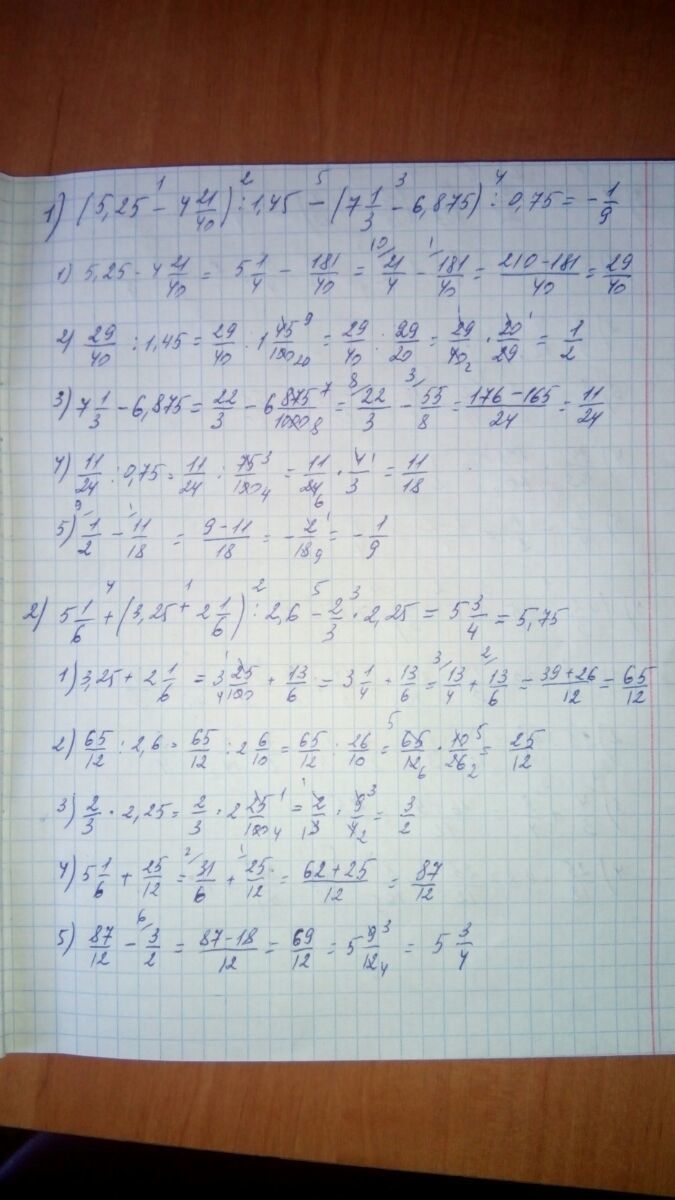 1) (5,25 - 4 21/40) : 1,45 - (7 1/3 - 6,875) : 0,75 = - 1/9
1) 5,25 - 4 21/40 = 5 1/4 - 181/40 = 21/4 - 181/40 = (210 - 181)/40 = 29/40
2) 29/40 : 1,45 = 29/40 : 1 45/100 = 29/40 : 29/20 = 29/40 · 20/29 = 1/2
3) 7 1/3 - 6,875 = 22/3 - 6 875/1000 = 22/3 - 55/8 = (176 - 165)/24 = 11/24
4) 11/24 : 0,75 = 11/24 : 75/100 = 11/24 · 4/3 = 11/18
5) 1/2 - 11/18 = (9 - 11)/18 = - 2/18 = - 1/9
2) 5 1/6 + (3,25 + 2 1/6) : 2,6 - 2/3 · 2,25 = 5 3/4 = 5,75
1) 3,25 + 2 1/6 = 3 25/100 + 13/6 = 3 1/4 + 13/6 = 13/4 + 13/6 = (39 + 26)/12 = 65/12
2) 65/12 : 2,6 = 65/12 : 2 6/10 = 65/12 : 26/10 = 65/12 · 10/26 = 25/12
3) 2/3 · 2,25 = 2/3 · 2 25/100 = 2/3 · 9/4 = 3/2
4) 5 1/6 + 25/12 = 31/6 + 25/12 = (62 + 25)/12 = 87/12
5) 87/12 - 3/2 = (87 - 18)/12 = 69/12 = 5 9/12 = 5 3/4